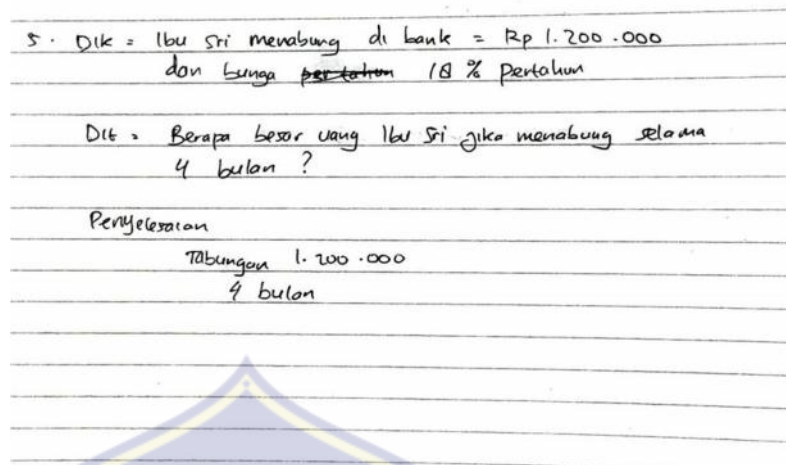 5. Dik = Ibu Sri menabung di bank = Rp 1.200.000
dan bunga per tahun 18 % pertahun
Dit = Berapa besar uang Ibu Sri jika menabung selama
4 bulan ?
Penyelesaian
Tabungan 1.200.000
4 bulan